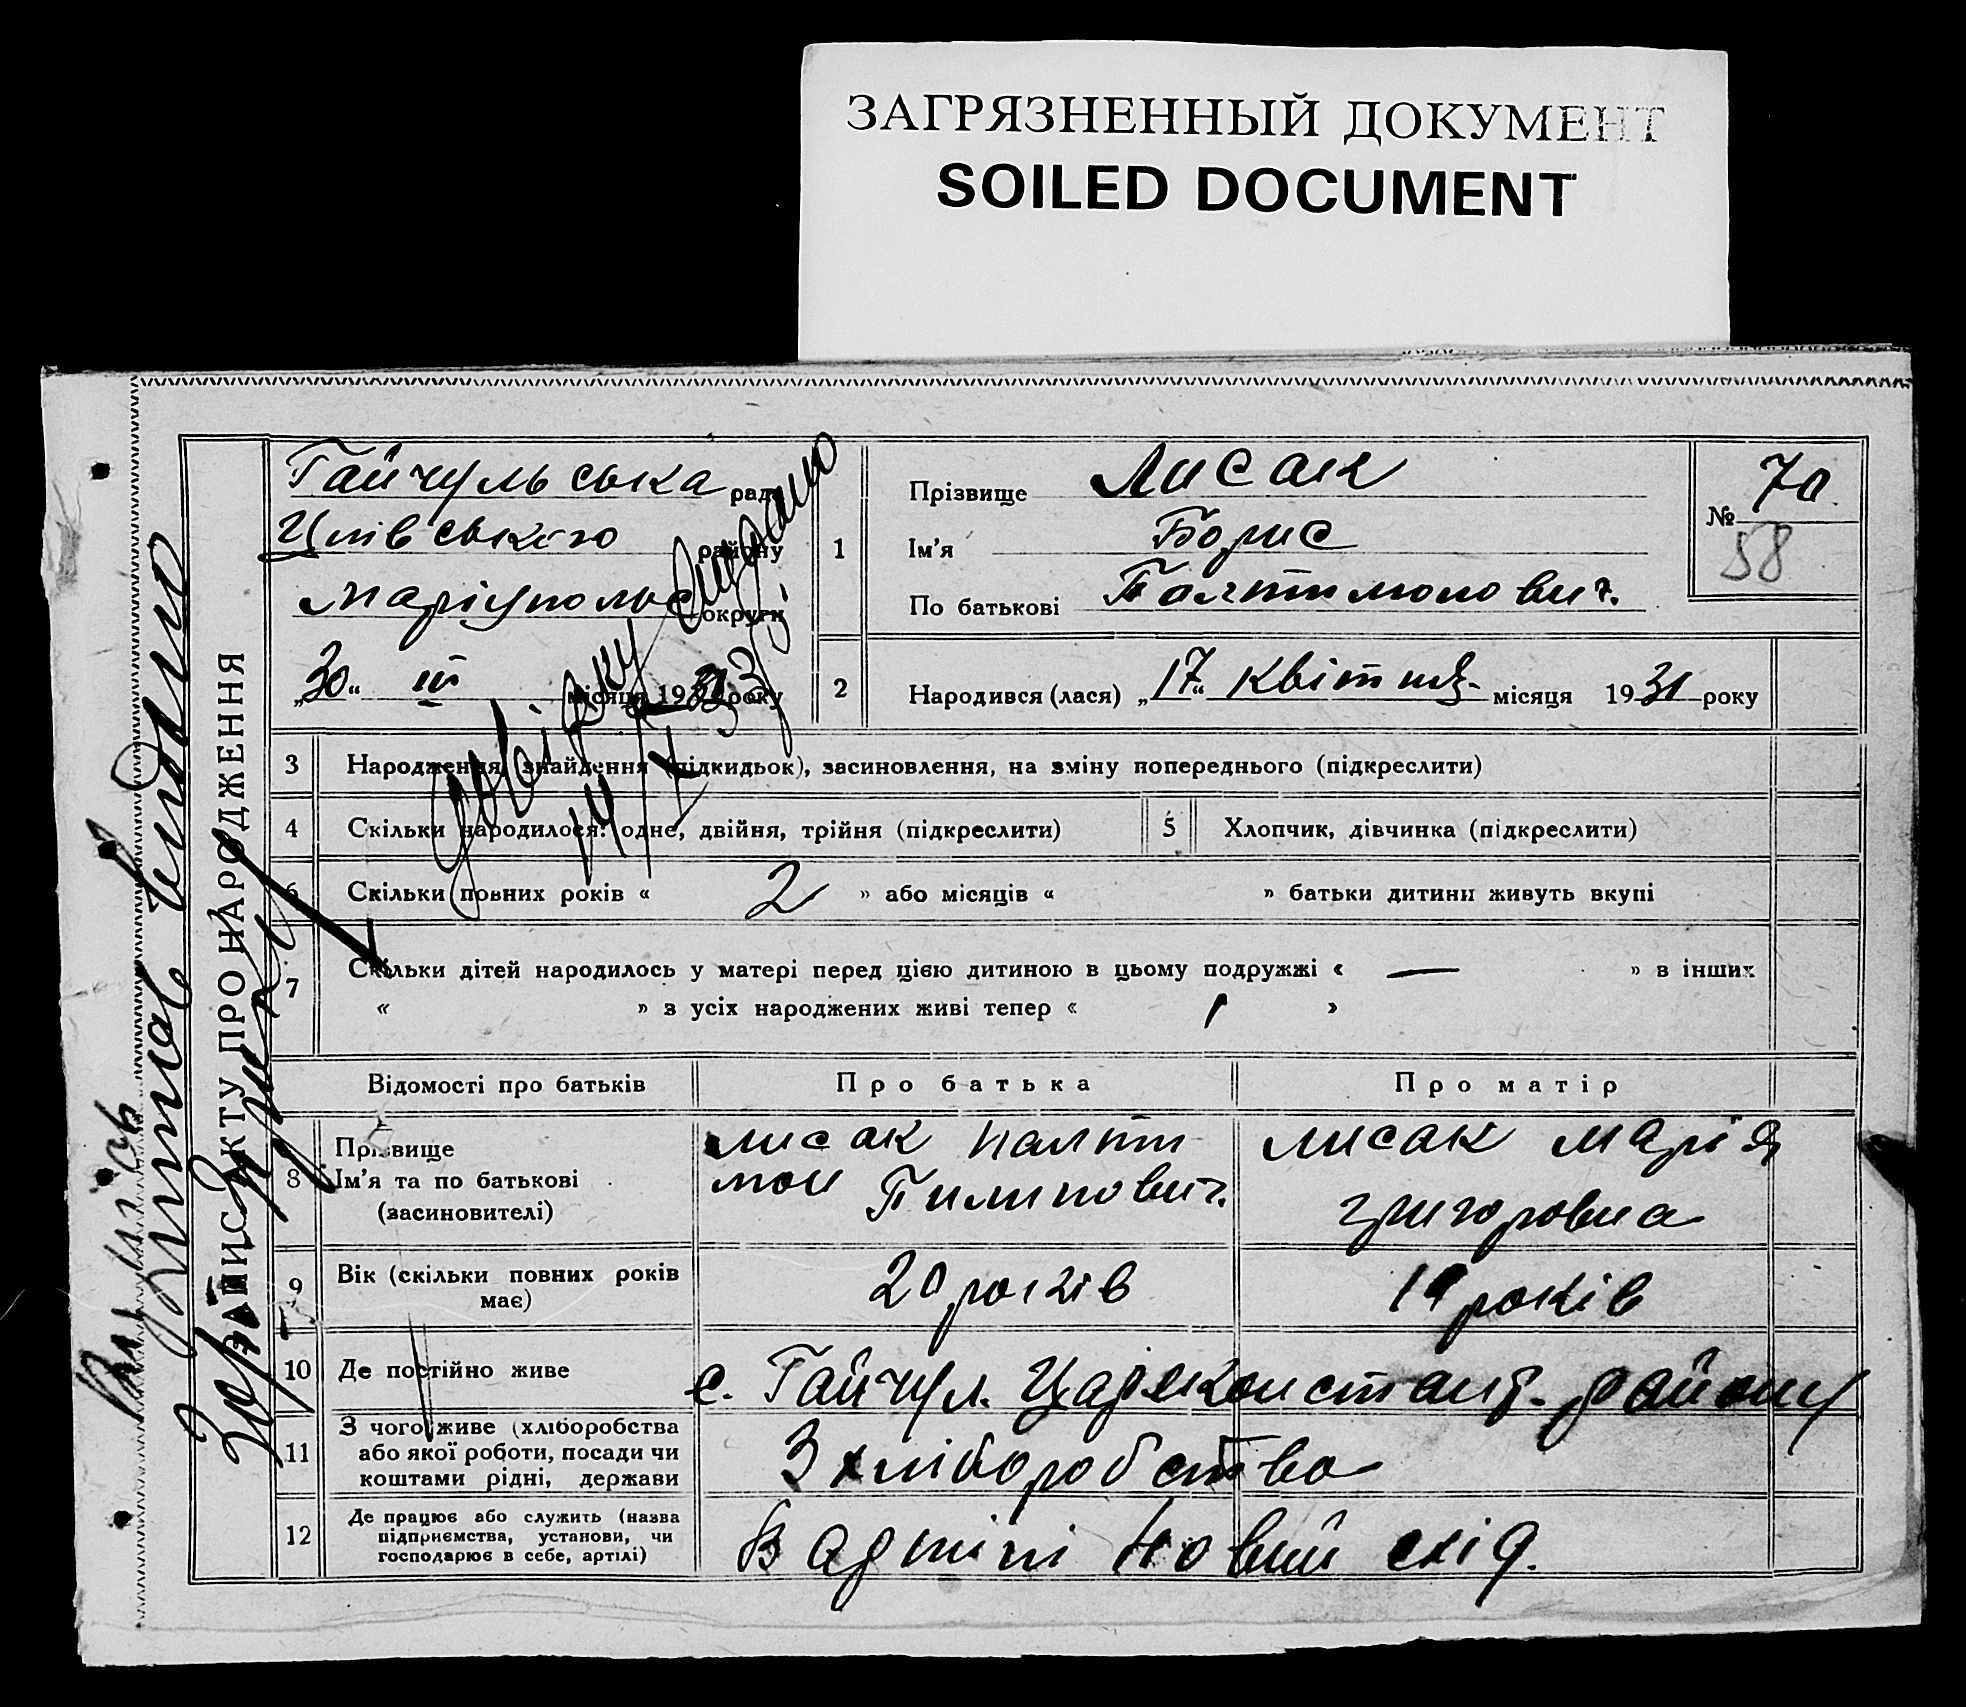 ЗАГРЯЗНЕННЫЙ ДОКУМЕНТ
SOILED DOCUMENT
ЗАПИС АКТУ ПРО НАРОДЖЕННЯ
Гайчульська рада
району
Маріупольс округи
„30“ IV місяця 19 року
довідку видано
1
Прізвище Лисак
Ім'я Борис
По батькові Палтимонович.
№ 70
58
2
Народився (лася) „17“ квітня місяця 1931 року
3 Народження, знайдення (підкидьок), засиновлення, на зміну попереднього (підкреслити)
4 Скільки народилося: одне, двійня, трійня (підкреслити)
5 Хлопчик, дівчинка (підкреслити)
6 Скільки повних років « 2 » або місяців « » батьки дитини живуть вкупі
7 Скільки дітей народилось у матері перед цією дитиною в цьому подружжі « — » в інших
« » з усіх народжених живі тепер « 1 »
Відомості про батьків
Про батька
Про матір
8 Прізвище
Ім'я та по батькові
(засиновителі)
Лисак Палти
мон Пилипович.
Лисак Марія
Григоровна
9 Вік (скільки повних років
має)
20 років
19 років
10 Де постійно живе
с. Гайчул. Царекостант. району
11 З чого живе (хліборобства
або якої роботи, посади чи
коштами рідні, держави
З хліборобства
12 Де працює або служить (назва
підприємства, установи, чи
господарює в себе, артілі)
В артілі Новий схід.